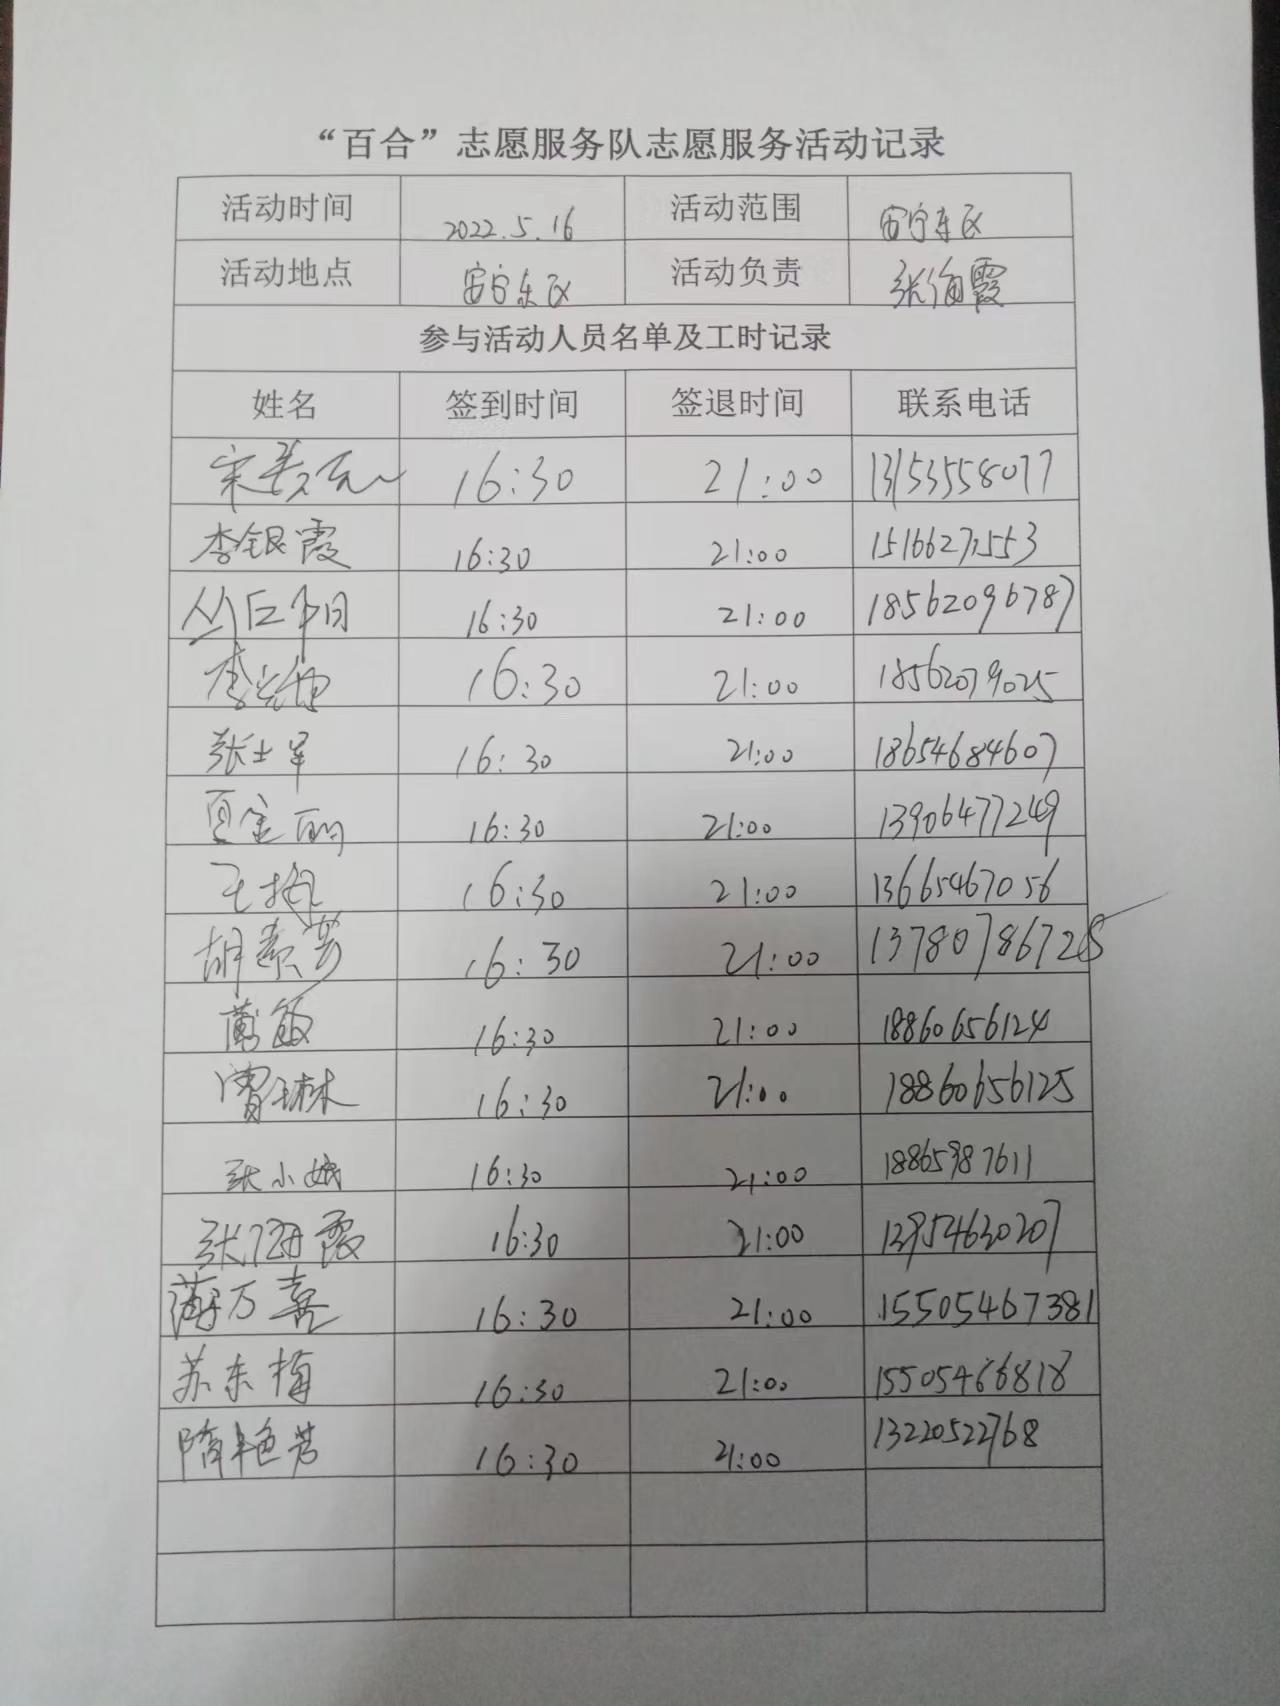 “百合”志愿服务队志愿服务活动记录
活动时间 2022.5.16 活动范围 安宁东区
活动地点 安宁东区 活动负责 张海霞
参与活动人员名单及工时记录
姓名 签到时间 签退时间 联系电话
宋 16:30 21:00 13153558077
李银霞 16:30 21:00 15166271553
丛 16:30 21:00 18562096787
李 16:30 21:00 18562079025
张士军 16:30 21:00 18654684607
夏金丽 16:30 21:00 13906477249
王 16:30 21:00 13665467056
胡素芳 16:30 21:00 13780786728
敏 16:30 21:00 18860656124
曹琳 16:30 21:00 18860656125
张小娥 16:30 21:00 18865987611
张海霞 16:30 21:00 13954630207
薄万喜 16:30 21:00 15505467381
苏东梅 16:30 21:00 15505466818
隋艳芳 16:30 21:00 13220522768